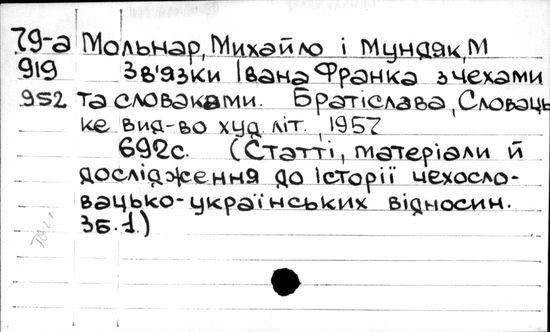 79-а Мольнар, Михайло і Мундяк, М
919 Зв'язки Івана Франка з чехами
952 та словаками. Братіслава, Словаць-
ке вид-во худ. літ., 1957
692с. (Статті, матеріали й
дослідження до історії чехосло-
вацько-українських відносин.
Зб.1.)